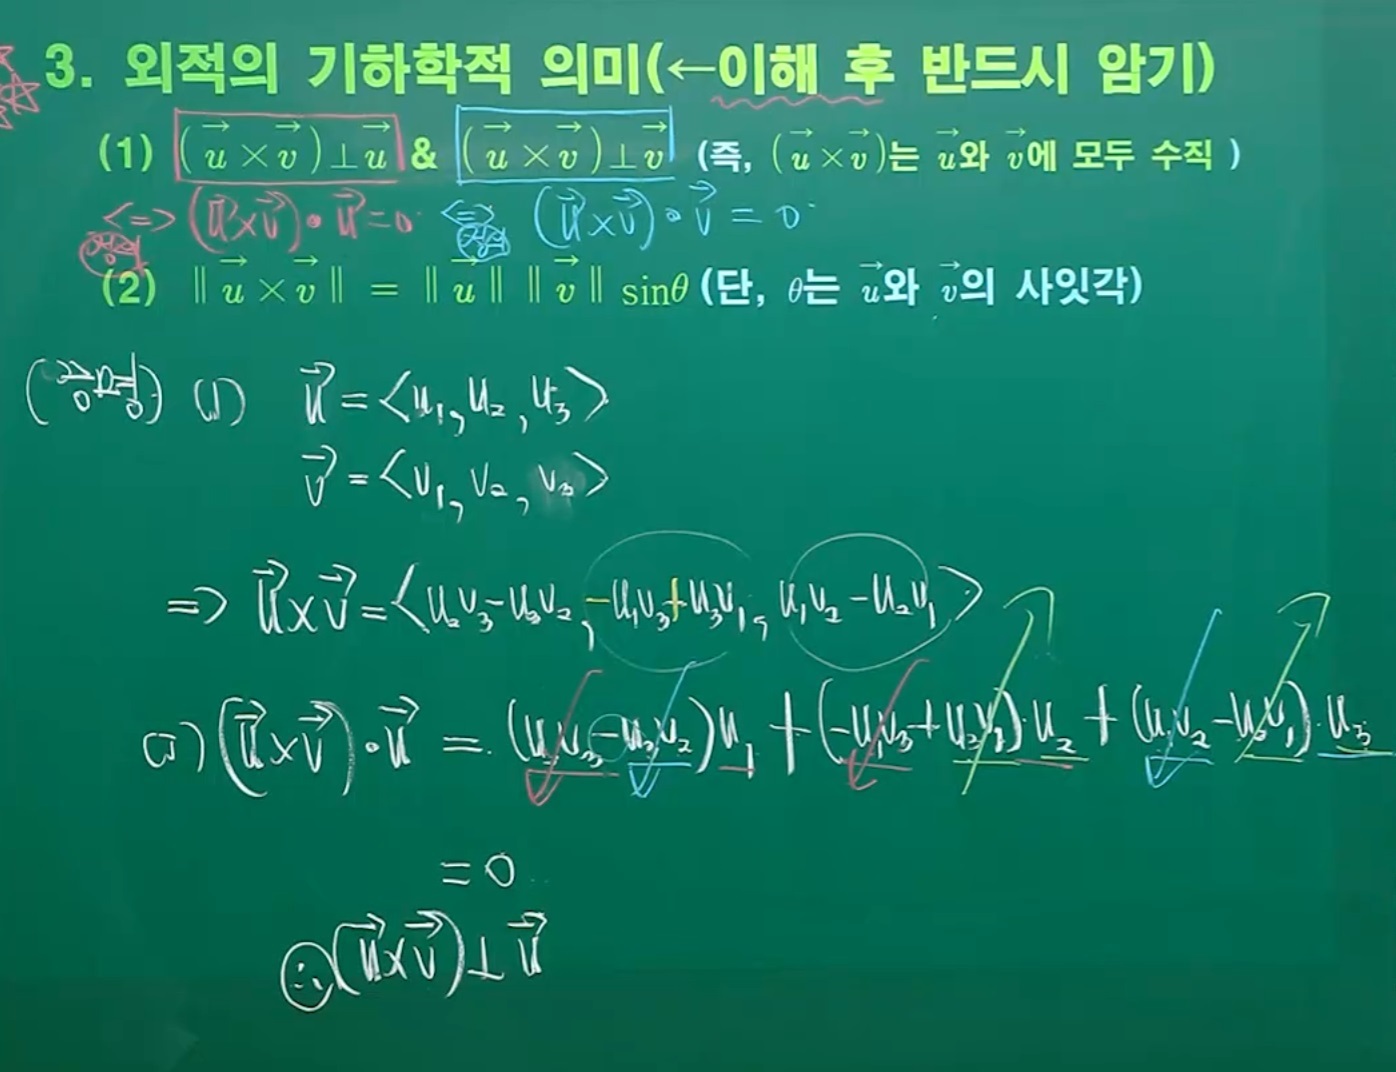 3. 외적의 기하학적 의미(←이해 후 반드시 암기)
(1) (u⃗ × v⃗)⊥u⃗ & (u⃗ × v⃗)⊥v⃗ (즉, (u⃗ × v⃗)는 u⃗와 v⃗에 모두 수직 )
<=> (u⃗×v⃗)•u⃗=0 <=> (u⃗×v⃗)•v⃗=0
(2) ‖u⃗ × v⃗‖ = ‖u⃗‖ ‖v⃗‖ sinθ (단, θ는 u⃗와 v⃗의 사잇각)
(1) u⃗=<u₁, u₂, u₃>
v⃗=<v₁, v₂, v₃>
=> u⃗×v⃗=<u₂v₃-u₃v₂, -u₁v₃+u₃v₁, u₁v₂-u₂v₁>
(u⃗×v⃗)•u⃗ = (u₂v₃-u₃v₂)u₁+(-u₁v₃+u₃v₁)·u₂+(u₁v₂-u₂v₁)·u₃
=0
∴(u⃗×v⃗)⊥u⃗